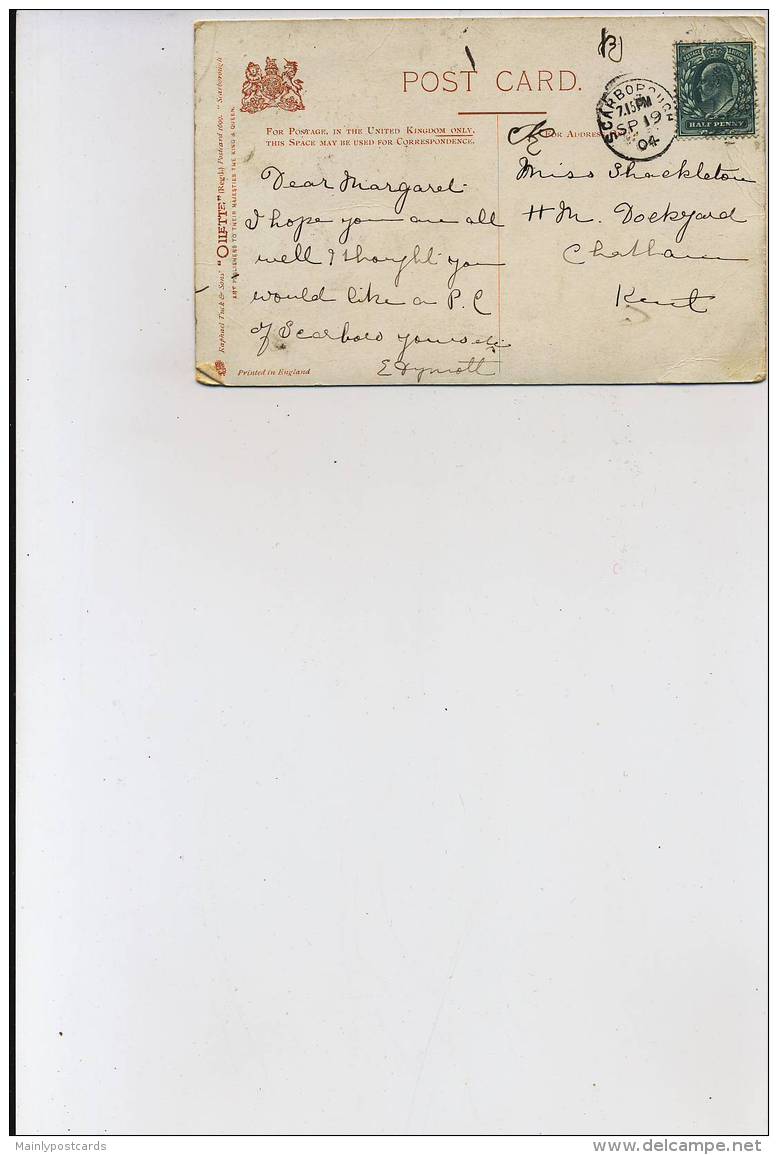 POST CARD.
FOR POSTAGE, IN THE UNITED KINGDOM ONLY,
THIS SPACE MAY BE USED FOR CORRESPONDENCE.
FOR ADDRESS
SCARBOROUGH
7.15PM
SP 19
04
HALF PENNY
Raphael Tuck & Sons' "OILETTE" (Regd.) Postcard 1699. "Scarborough
ART PUBLISHERS TO THEIR MAJESTIES THE KING & QUEEN.
Dear Margaret
I hope you are all
well I thought you
would like a P.C
of Scarboro yours etc
E Dymott
Miss Shackleton
H M. Dockyard
Chatham
Kent
Printed in England
Mainlypostcards
delcampe.net